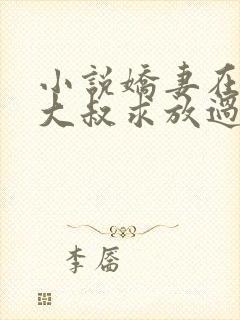 小說嬌妻在
大叔求放過
李唇